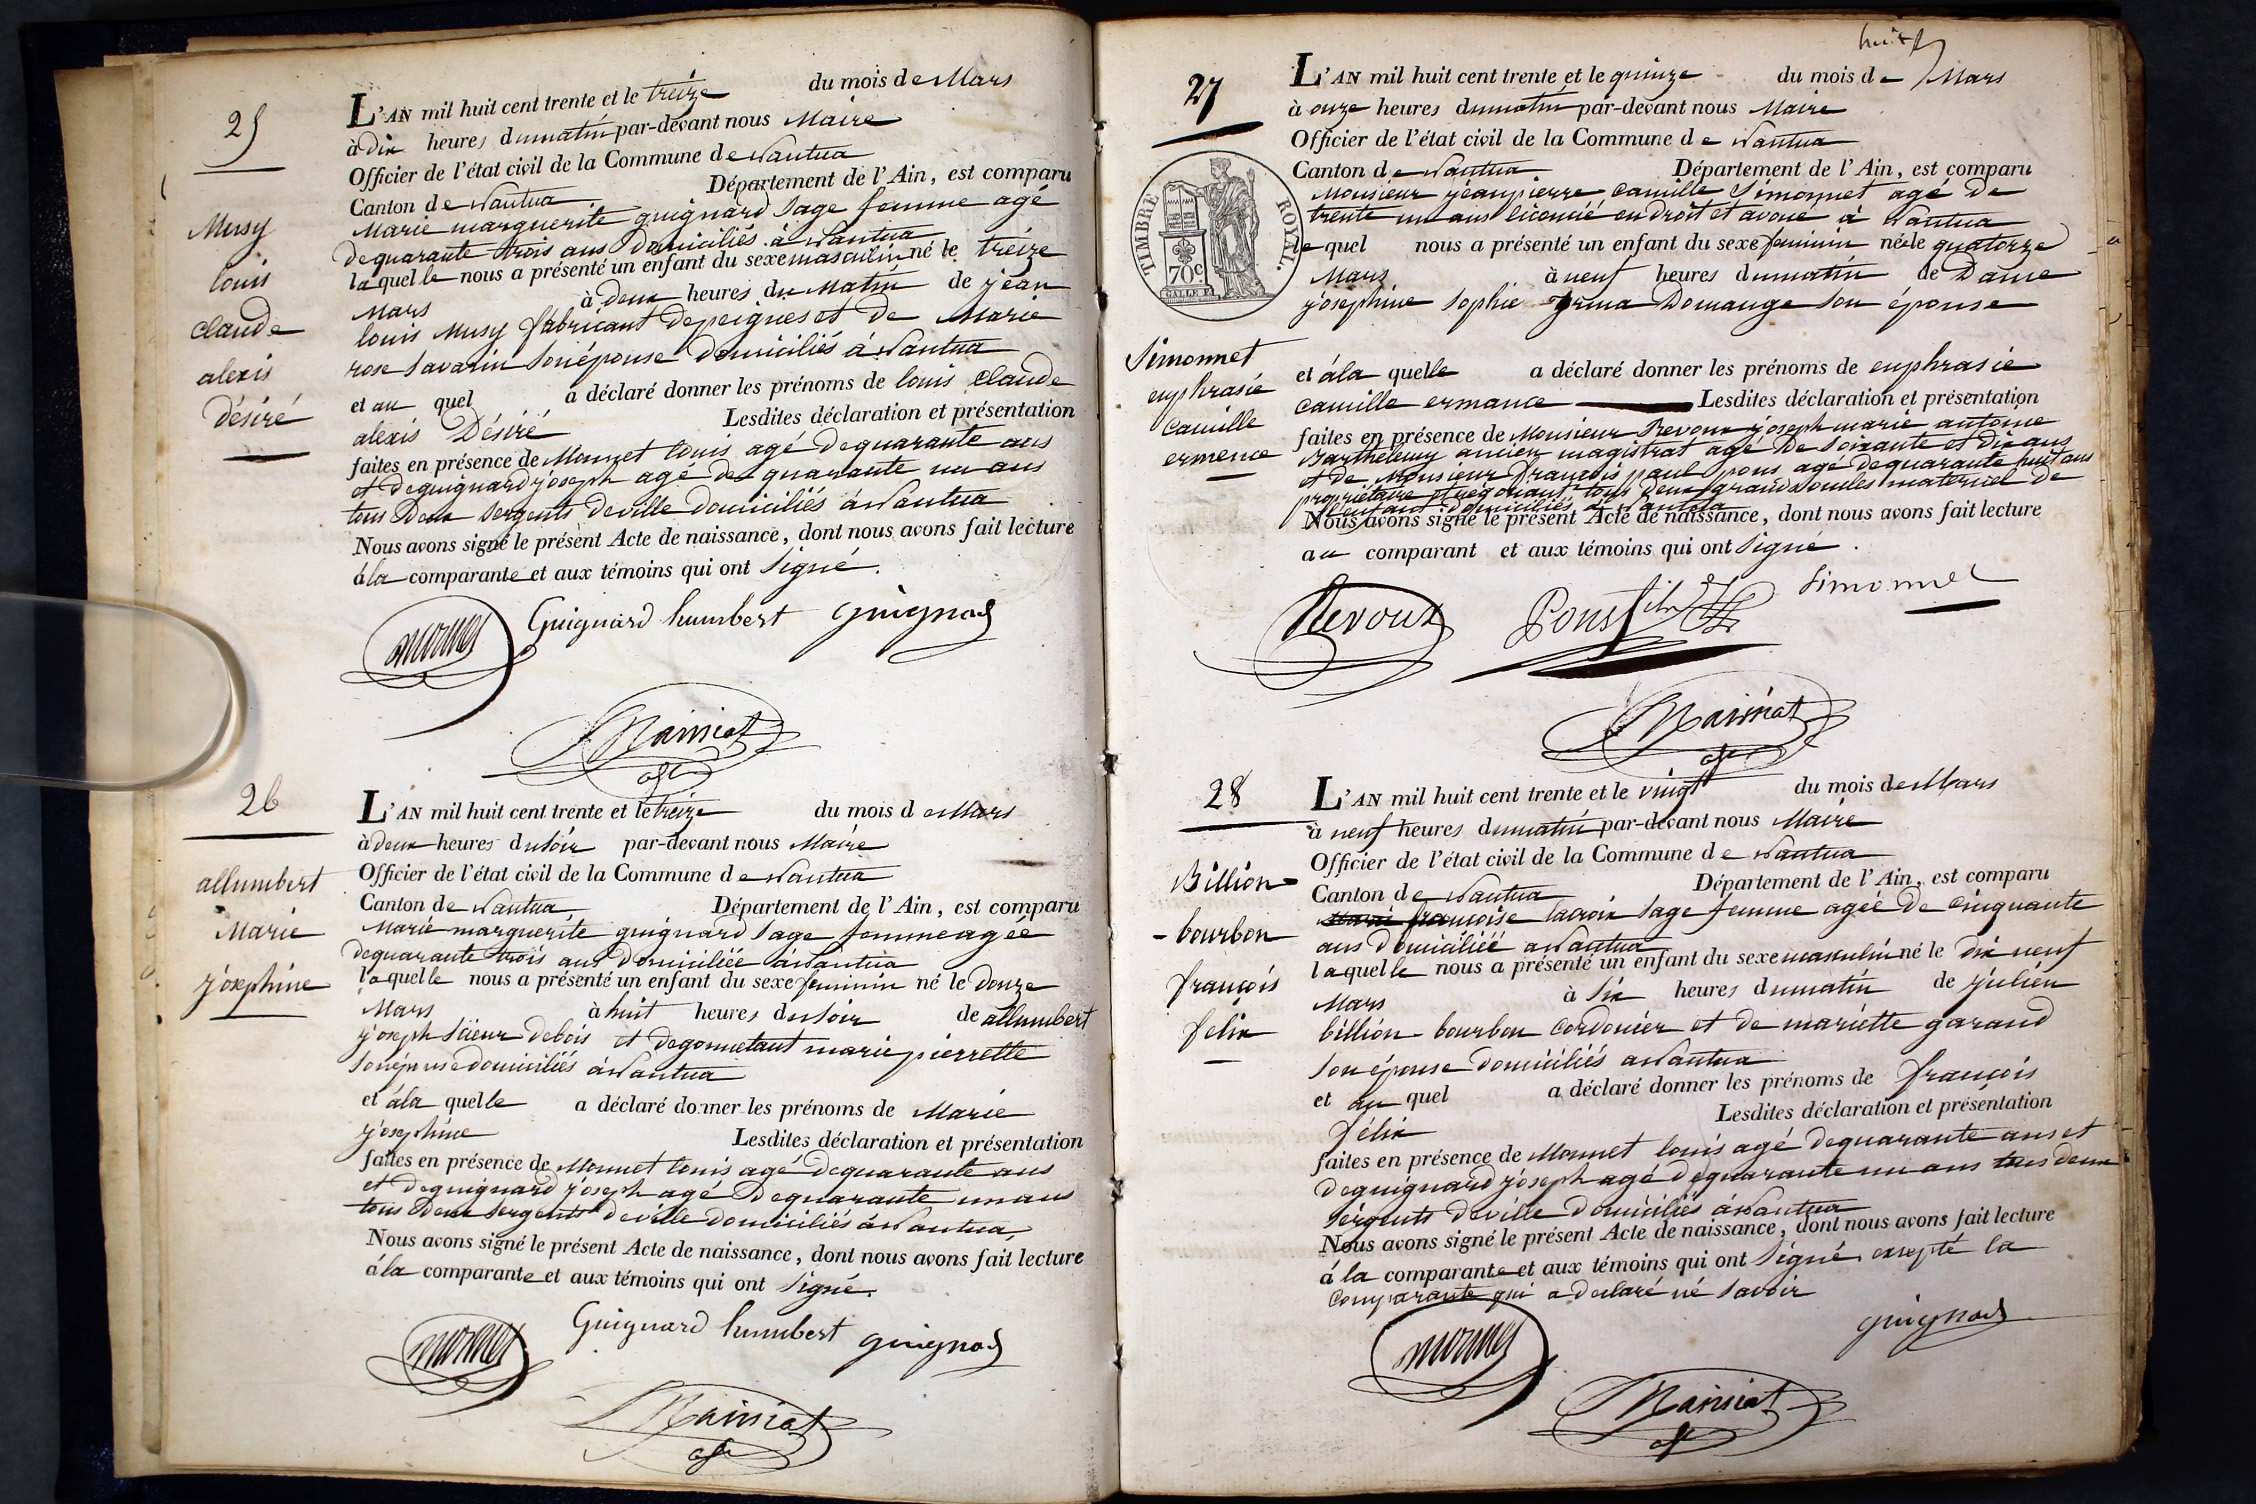 25
Musy
louis
claude
alexis
désiré
L'AN mil huit cent trente et le treize du mois de Mars
à dix heures du matin par-devant nous Maire
Officier de l'état civil de la Commune de Nantua
Canton de Nantua Département de l'Ain, est comparu
Marie marguerite guignard Sage femme agé
de quarante trois ans domiciliés à Nantua
laquelle nous a présenté un enfant du sexe masculin né le treize
Mars à deux heures du Matin de jean
louis Musy fabricant de peignes et de Marie
rose Savarin son épouse domiciliés á Nantua
et au quel a déclaré donner les prénoms de louis claude
alexis Désiré Lesdites déclaration et présentation
faites en présence de Monnet louis agé de quarante ans
et de guignard joseph agé de quarante un ans
tous deux sergents de ville domiciliés á Nantua
Nous avons signé le présent Acte de naissance, dont nous avons fait lecture
á la comparante et aux témoins qui ont Signé.
monnet Guignard humbert guignard
Mainiat
26
allumbert
Marie
josephine
L'AN mil huit cent trente et le treize du mois de Mars
à deux heures du soir par-devant nous Maire
Officier de l'état civil de la Commune de Nantua
Canton de Nantua Département de l'Ain, est comparu
Marie marguerite guignard Sage femme agée
de quarante trois ans domiciliée á Nantua
laquelle nous a présenté un enfant du sexe feminin né le Douze
Mars à huit heures du soir de allumbert
joseph Scieur de bois et de gonnetant marie pierrette
son épouse domiciliés á Nantua
et á la quelle a déclaré donner les prénoms de Marie
josephine Lesdites déclaration et présentation
faites en présence de Monnet louis agé de quarante ans
et de guignard joseph agé de quarante un ans
tous deux sergents de ville domiciliés á Nantua,
Nous avons signé le présent Acte de naissance, dont nous avons fait lecture
á la comparante et aux témoins qui ont Signé.
monnet Guignard humbert guignard
Mainiat
huit
27
TIMBRE ROYAL.
70c
Simonnet
euphrasie
Camille
ermence
L'AN mil huit cent trente et le quinze du mois de Mars
à onze heures du matin par-devant nous Maire
Officier de l'état civil de la Commune de Nantua
Canton de Nantua Département de l'Ain, est comparu
Monsieur jean pierre camille Simonnet agé de
trente un ans licencié en droit et avoué á Nantua
le quel nous a présenté un enfant du sexe feminin née le quatorze
Mars à neuf heures du matin de Dame
josephine sophie Irma Domange son épouse
et á la quelle a déclaré donner les prénoms de euphrasie
camille ermance Lesdites déclaration et présentation
faites en présence de Monsieur Revoux joseph marie antoine
Barthelemy ancien magistrat agé de soixante et dix ans
et de Monsieur françois paul pons agé de quarante huit ans
propriétaire et négociant tous deux grands oncles maternel de
l'enfant domiciliés à Nantua
Nous avons signé le présent Acte de naissance, dont nous avons fait lecture
au comparant et aux témoins qui ont Signé.
Revoux Pons Simonnet
Mainiat
28
Billion
- bourbon
françois
félix
L'AN mil huit cent trente et le vingt du mois de Mars
à neuf heures du matin par-devant nous Maire
Officier de l'état civil de la Commune de Nantua
Canton de Nantua Département de l'Ain, est comparu
françoise lacroix Sage femme agée de cinquante
ans domiciliéé a Nantua
laquelle nous a présenté un enfant du sexe masculin né le dix neuf
Mars à Six heures du matin de julien
billion-bourbon Cordonier et de mariette garand
son épouse domiciliés a Nantua
et au quel a déclaré donner les prénoms de françois
félix Lesdites déclaration et présentation
faites en présence de Monnet louis agé de quarante ans et
de guignard joseph agé de quarante un ans tous deux
sergents de ville domiciliés á Nantua
Nous avons signé le présent Acte de naissance, dont nous avons fait lecture
á la comparante et aux témoins qui ont Signé exsepté la
comparante qui a declaré né Savoir
monnet guignard
Mainiat